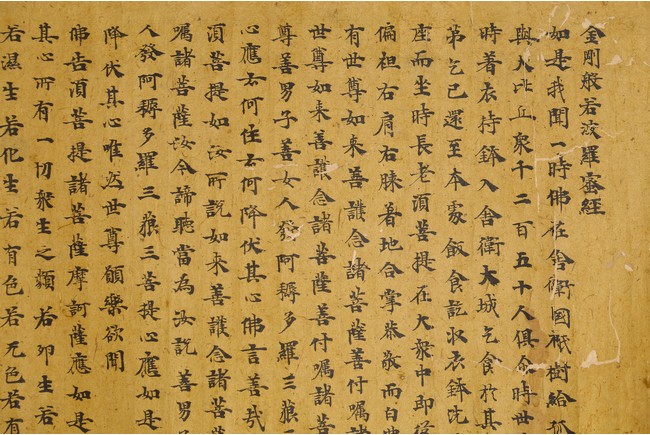 金剛般若波羅蜜經
如是我聞一時佛在舍衛國祇樹給孤
與大比丘衆千二百五十人俱尒時世
時著衣持鉢入舍衛大城乞食於其
第乞已還至本處飯食訖収衣鉢洗
座而坐時長老湏菩提在大衆中即從
偏袒右肩右膝著地合掌恭敬而白
有世尊如来善護念諸菩薩善付囑諸
世尊如来善護念諸菩薩善付囑諸菩
尊善男子善女人發阿耨多羅三藐三
心應云何住云何降伏其心佛言善哉
湏菩提如汝所說如来善護念諸菩
囑諸菩薩汝今諦聽當為汝說善男
人發阿耨多羅三藐三菩提心應如是
降伏其心唯然世尊願樂欲聞
佛告湏菩提諸菩薩摩訶薩應如是
其心所有一切衆生之類若卵生若
若濕生若化生若有色若无色若有